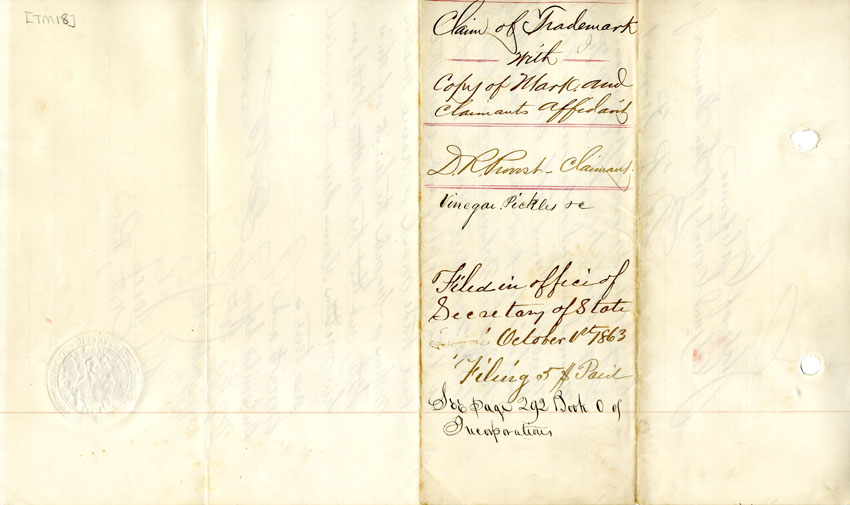 [TM18]
Claim of Trademark
with
Copy of Mark, and
Claimants Affidavit
D. R. Provost - Claimant.
Vinegar. Pickles &c
Filed in office of
Secretary of State
October 1st 1863
Filing 5 $ Paid
See page 292 Book O of
Incorporations